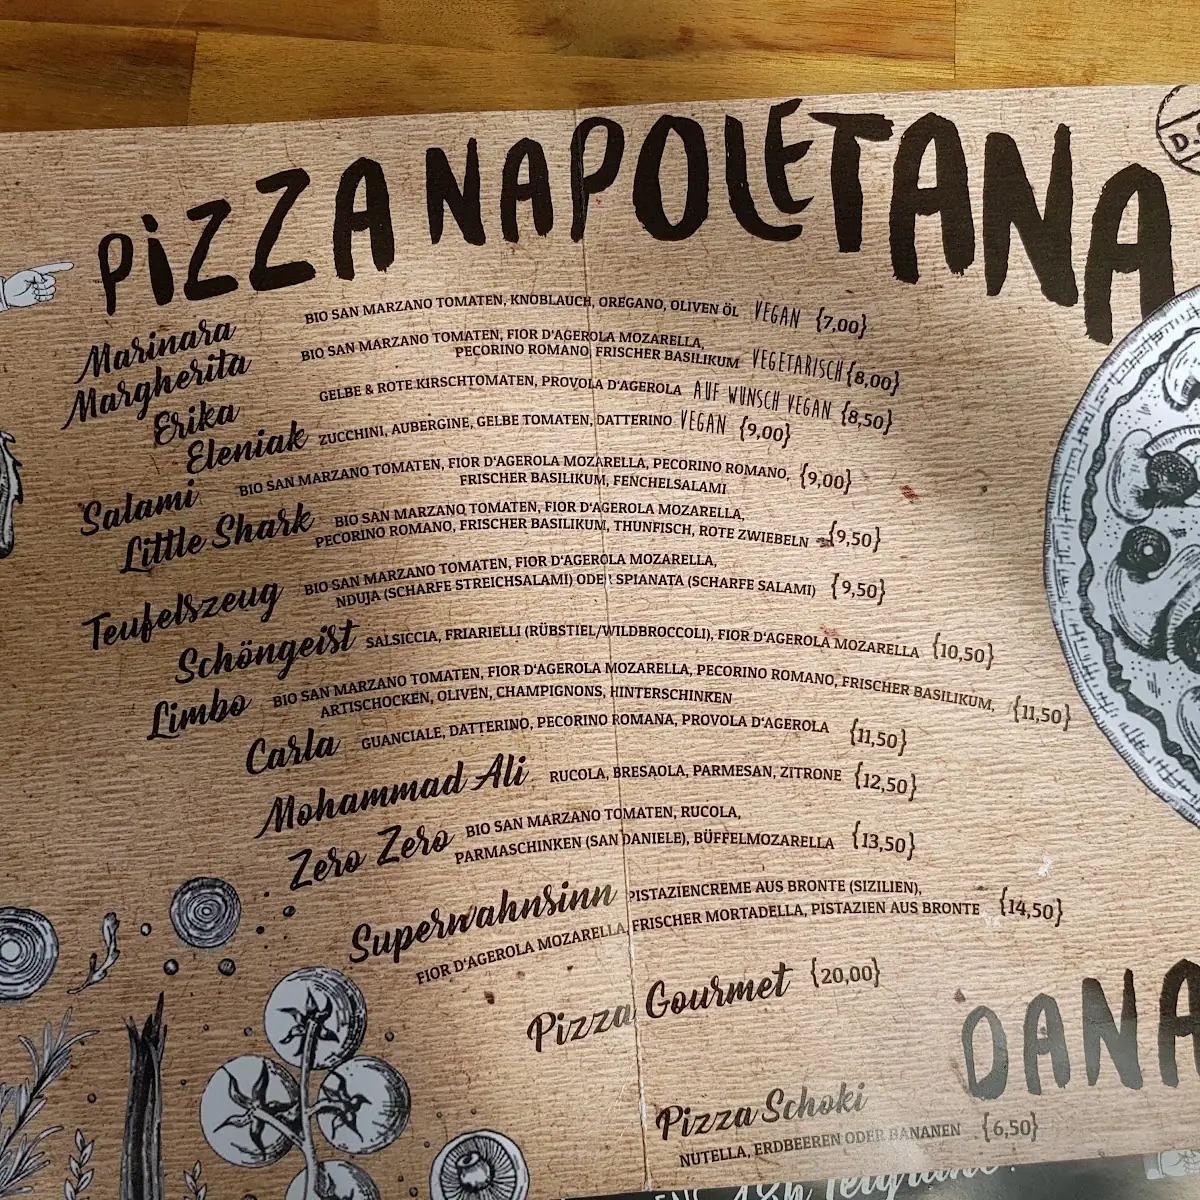 PiZZA NAPOLETANA
D.
Marinara BIO SAN MARZANO TOMATEN, KNOBLAUCH, OREGANO, OLIVEN ÖL VEGAN {7,00}
Margherita BIO SAN MARZANO TOMATEN, FIOR D'AGEROLA MOZARELLA,
PECORINO ROMANO, FRISCHER BASILIKUM VEGETARISCH {8,00}
Erika GELBE & ROTE KIRSCHTOMATEN, PROVOLA D'AGEROLA AUF WUNSCH VEGAN {8,50}
Eleniak ZUCCHINI, AUBERGINE, GELBE TOMATEN, DATTERINO VEGAN {9,00}
Salami BIO SAN MARZANO TOMATEN, FIOR D'AGEROLA MOZARELLA, PECORINO ROMANO, {9,00}
FRISCHER BASILIKUM, FENCHELSALAMI
Little Shark BIO SAN MARZANO TOMATEN, FIOR D'AGEROLA MOZARELLA,
PECORINO ROMANO, FRISCHER BASILIKUM, THUNFISCH, ROTE ZWIEBELN {9,50}
Teufelszeug BIO SAN MARZANO TOMATEN, FIOR D'AGEROLA MOZARELLA,
NDUJA (SCHARFE STREICHSALAMI) ODER SPIANATA (SCHARFE SALAMI) {9,50}
Schöngeist SALSICCIA, FRIARIELLI (RÜBSTIEL/WILDBROCCOLI), FIOR D'AGEROLA MOZARELLA {10,50}
Limbo BIO SAN MARZANO TOMATEN, FIOR D'AGEROLA MOZARELLA, PECORINO ROMANO, FRISCHER BASILIKUM, {11,50}
ARTISCHOCKEN, OLIVEN, CHAMPIGNONS, HINTERSCHINKEN
Carla GUANCIALE, DATTERINO, PECORINO ROMANA, PROVOLA D'AGEROLA {11,50}
Mohammad Ali RUCOLA, BRESAOLA, PARMESAN, ZITRONE {12,50}
Zero Zero BIO SAN MARZANO TOMATEN, RUCOLA,
PARMASCHINKEN (SAN DANIELE), BÜFFELMOZARELLA {13,50}
Superwahnsinn PISTAZIENCREME AUS BRONTE (SIZILIEN),
FIOR D'AGEROLA MOZARELLA, FRISCHER MORTADELLA, PISTAZIEN AUS BRONTE {14,50}
Pizza Gourmet {20,00}
DANA
Pizza Schoki
NUTELLA, ERDBEEREN ODER BANANEN {6,50}